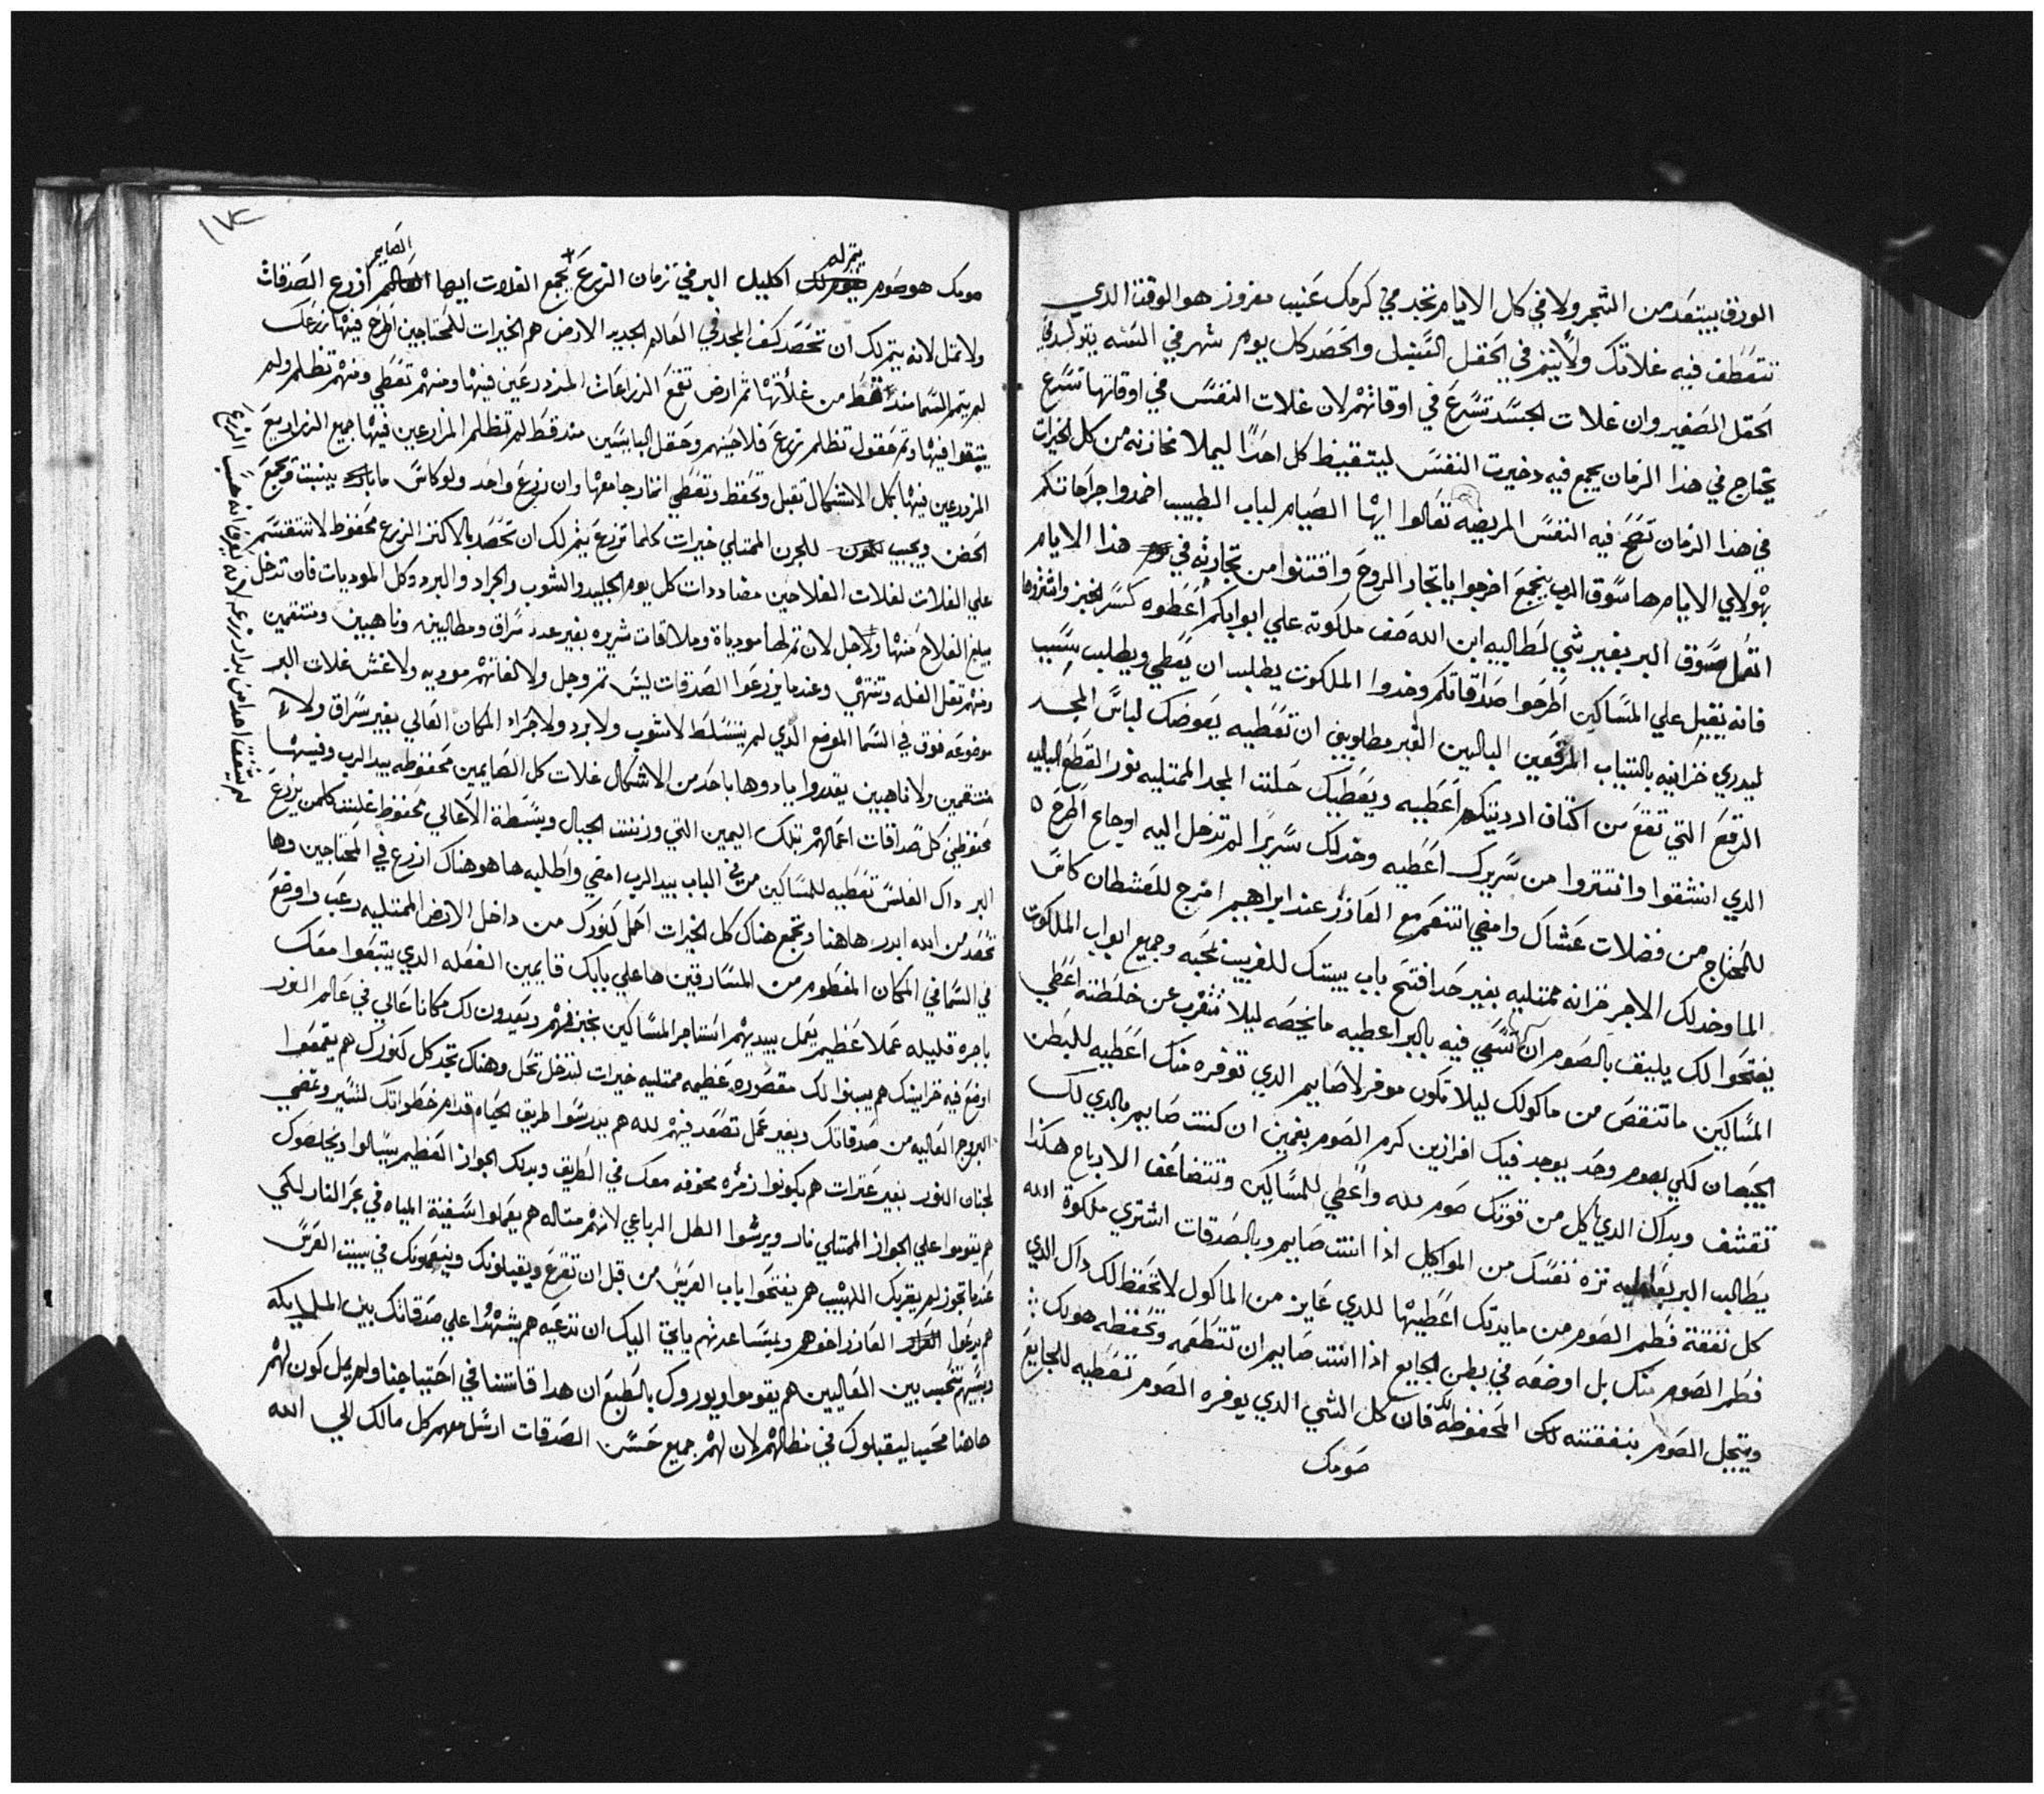 الورق يبتعد من الشجر ولا في كل الايام تجد في كرمك عنب مفروز هو الوقت الذي
تتقطف فيه غلاتك ولا يتم في الحقل السنبل والحصد كل يوم شهر في السنه يتولد في
الحقل الصغير وان غلات الجسد تسرع في اوقاتهم لان غلات النفس في اوقاتها تسرع
يحتاج في هذا الزمان يجمع فيه دخيرت النفس ليتقيظ كل احدًا ليملا مخازنه من كل الخيرات
في هذا الزمان تصح فيه النفس المريضه تعالوا ايها الصيام لباب الطبيب اضمدوا جراحاتكم
بهولاي الايام ها سوق البر يجمع اخرجوا ياتجار الروح واقتنوا من تجارته في هذا الايام
اتعمل سوق البر بغير شي لطالبيه ابن الله صف ملكوته علي ابوابكم اعطوه كسر الخبز واشتروها
فانه يقبل علي المساكين اطرحوا صداقاتكم وخدوا الملكوت يطلب ان يعطي ويطلب بسبب
ليدري خزاينه بالتياب المرقعين الباليين الغير مطلوبين ان تعطيه يعوضك لباس المجد
الرقع التي تقع من اكتاف ارديتكم اعطيه ويعطيك حلت المجد الممتليه نور القطع الباليه
الدي انشقوا وانتتروا من سريرك اعطيه وخد لك سريرًا لم تدخل اليه اوجاع اطرح
للمحتاج من فضلات عشاك وامضي اتنعم مع العازر عند ابراهيم امزج للعطشان كاس
الما وخد لك الاجر خزانه ممتليه بغير حد افتح باب بيتك للغريب بمحبه وجميع ابواب الملكوت
يفتحوا لك يليق بالصوم ان تسمي فيه بالبر اعطيه ما يخصه ليلا تتغرب عن خلطته اعطي
المساكين ما تنقص من ماكولك ليلا تكون موفر لا صايم الدي توفره منك اعطيه للبطن
الجيعان لكي بصوم وحد يوجد فيك افرازين كرم الصوم بغمين ان كنت صايم بالدي لك
تقشف وبداك الدي ياكل من قوتك صوم لله واعطي للمساكين وتتضاعف الارباح هكذا
يطالب البر نزه نفسك من المواكيل اذا انت صايم وبالصدقات اشتري ملكوة الله
كل نفقة فطر الصوم من مايدتك اعطيها للدي عايز من الماكول لا تحفظ لك داك الدي
فطر الصوم منك بل اوضعه في بطن الجايع اذا انت صايم ان تتطعمه وتحفظه هو لك
ويتجل الصوم بنفقته لك المحفوظه فان كل الشي الدي يوفره الصوم تعطيه للجايع
صومك
١٧٤
يتم له
الصايم
مومك هو صوم اكليل البر في زمان الزرع تجمع الغلات ايها ازرع الصدقات
ولا تمل لانه يتم لك ان تحصد كنف المجد في العالم الجديد الارض هم الخيرات للمحتاجين اطرح فيها زرعك
لم يتم السما مند قط من غلاتها ثم ارض تقمع الزراعات المزدرعين فيها ومنهم تعطي ومنهم تظلم ولم
يبقوا فيها وثم حقول تظلم زرع فلاحينهم وحقل البابسين مند قط لم تظلم المزارعين فيها جميع الزراريع
المزدرعين فيها بكل الاشكال تقبل وتحفظ وتعطي اثمار جامعها وان زرع واحد ولو كاس ما بارد ينبت وتجمع
الحضن ويجيب للجرن الممتلي خيرات كلما تزرع يتم لك ان تحصد بالاكتر الزرع محفوظ لا تتقسم
علي الغلات لغلات الفلاحين مضاددات كل يوم الجليد والشوب والجراد والبرد وكل الموديات فان تدخل
مبلغ الفلاح منها ولاجل لان ثم لها مودياة وملاقات شريره بغير عدد سراق ومطالبين وناهبين ومنتقمين
ومنهم تقل الغله وتنتهي وعندما يزرعوا الصدقات ليس ثم وجل ولا لفانهم موديه ولا غش غلات البر
موضوعه فوق في السما الموضع الدي لم يتسلط لا شوب ولا برد ولا جراد المكان العالي بغير سراق ولا
منتقمين ولا ناهبين يقدروا يادوها باحد من الاشكال غلات كل الصايمين محفوظه بيد الرب وفيها
محفوظين كل صداقات اعمالهم بتلك اليمين التي وزنت الجبال وبسطة الاعالي محفوظ غلت كلمن يزرع
البر داك الفلس تعطيه للمساكين من في الباب بيد الرب امضي واطلبه ها هو هناك ازرع في المحتاجين وها
تحصد من الله ابدر هاهنا وتجمع هناك كل الخيرات احمل كنوزك من داخل الارض الممتليه رعب واوضع
في السما في المكان المغطوم من السارقين ها علي بابك قايمين الفعله الدي يتبعوا معك
باجره قليله عملا عظيم يعمل بيديهم استاجر المساكين بخبز فمهم ويعيدون لك مكانا عالي في عالم النور
اوضع فيه خزاينك هم يبنوا لك مقصوره عظيمه ممتليه خيرات لتدخل تحل وهناك تجد كل كنوزك هم يقمعوا
البروج العاليه من صدقاتك وبغير عمل تصعد فيهم لله هم يدرسوا طريق الحياه قدام خطواتك لتسير وتمضي
لجنان النور بغير عترات هم يكونوا زمره مخوفه معك في الطريق وبدلك الجواز العظيم يسالوا ويخلصوك
هم يقوموا علي الجواز الممتلي نار ويرشوا الطل الرباعي لانهم مثاله هم يعملوا سفينة المياه في بحر النار لكي
عندما تجوز لم يقربك اللهيب هم يفتحوا باب العريس من قبل ان تقرع ويقبلونك وينعمونك في بيت العرس
هم يدعوا العازر اخوهم ولمساعدتهم ياتي اليك ان تدعيه هم يشهدوا علي صدقاتك بين الملايكه
وبينهم تتحسب بين العاليين هم يقوموا ويوروك بالطبع ان هدا قاتنا في احتياجنا ولم يمل كون لهم
هاهنا محب ليقبلوك في مظالهم لان لهم جميع حسن الصدقات ارسل معهم كل مالك الي الله
لم يشفقا احد ان يدار زرعه لانه يعرف انه حسب الزرع